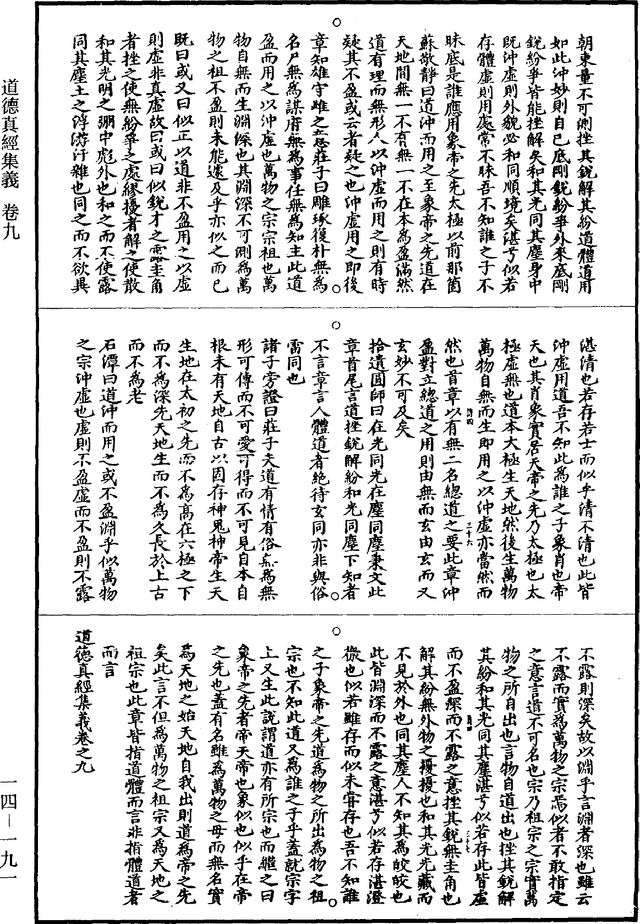 道德真經集義 卷九
一四—一九一
朝東量不可測挫其銳解其紛道體道用
如此沖妙則自己底剛銳紛爭外來底剛
銳紛爭皆能挫解矣和其光同其塵身中
既沖虛則外貌必和同順境矣湛兮似若
存體虛則用處常不昧吾不知誰之子不
昧底是誰應用象帝之先太極以前那箇
蘇敬靜曰道沖而用之至象帝之先道在
天地間無一不有無一不在本為盈滿然
道有理而無形人以沖虛而用之則有時
疑其不盈或云者疑之也沖虛用之即後
章知雄守雌之意莊子曰雕琢復朴無為
名尸無為謀府無為事任無為知主此道
盈而用之以沖虛也萬物之宗宗祖也萬
物自無而生淵深也其淵深不可測為萬
物之祖不盈則未能遽及乎亦似之而已
既曰或又曰似正以道非不盈用之以虛
則虛非真虛故曰或曰似銳才之露圭角
者挫之使無紛爭之處繆擾者解之使散
和其光明之弸中彪外也和之而不使露
同其塵土之浮游汙雜也同之而不欲異
湛清也若存若士而似乎清不清也此皆
沖虛用道吾不知此為誰之子象肖也帝
天也其肖象實居天帝之先乃太極也太
極虛無也道本太極生天地然後生萬物
萬物自無而生即用之以沖虛亦當然而
然也首章以有無二名總道之要此章沖
盈對立總道之用則由無而玄由玄而又
玄妙不可及矣
拾遺圓師曰在光同光在塵同塵秉文此
章首尾言道挫銳解紛和光同塵下知者
不言章言人體道者絕待玄同亦非與俗
雷同也
諸子旁證曰莊子夫道有情有俗無為無
形可傳而不可愛可得而不可見自本自
根未有天地自古以固存神鬼神帝生天
生地在太初之先而不為高在六極之下
而不為深先天地生而不為久長於上古
而不為老
石潭曰道沖而用之或不盈淵乎似萬物
之宗沖虛也虛則不盈虛而不盈則不露
不露則深矣故以淵乎言淵者深也雖云
不露而實為萬物之宗焉似者不敢指定
之意言道不可名也宗乃祖宗之宗實萬
物之所自出也言物自道出也挫其銳解
其紛和其光同其塵湛兮似若存此皆虛
而不盈深而不露之意挫其銳無圭角也
解其紛無外物之擾擾也和其光光藏而
不見於外也同其塵人不知其為皎皎也
此皆淵深而不露之意湛兮似若存湛澄
微也似若雖存而似未甞存也吾不知誰
之子象帝之先道為物之所出為物之祖
宗也不知此道又為誰之子乎蓋就宗字
上又生此說謂道亦有所宗也而繼之曰
象帝之先者帝天帝也象似也似乎在帝
之先也蓋有名雖為萬物之母而無名實
為天地之始天地自我出則道為帝之先
矣此言不但為萬物之祖宗又為天地之
祖宗也此章皆指道體而言非指體道者
而言
道德真經集義卷之九